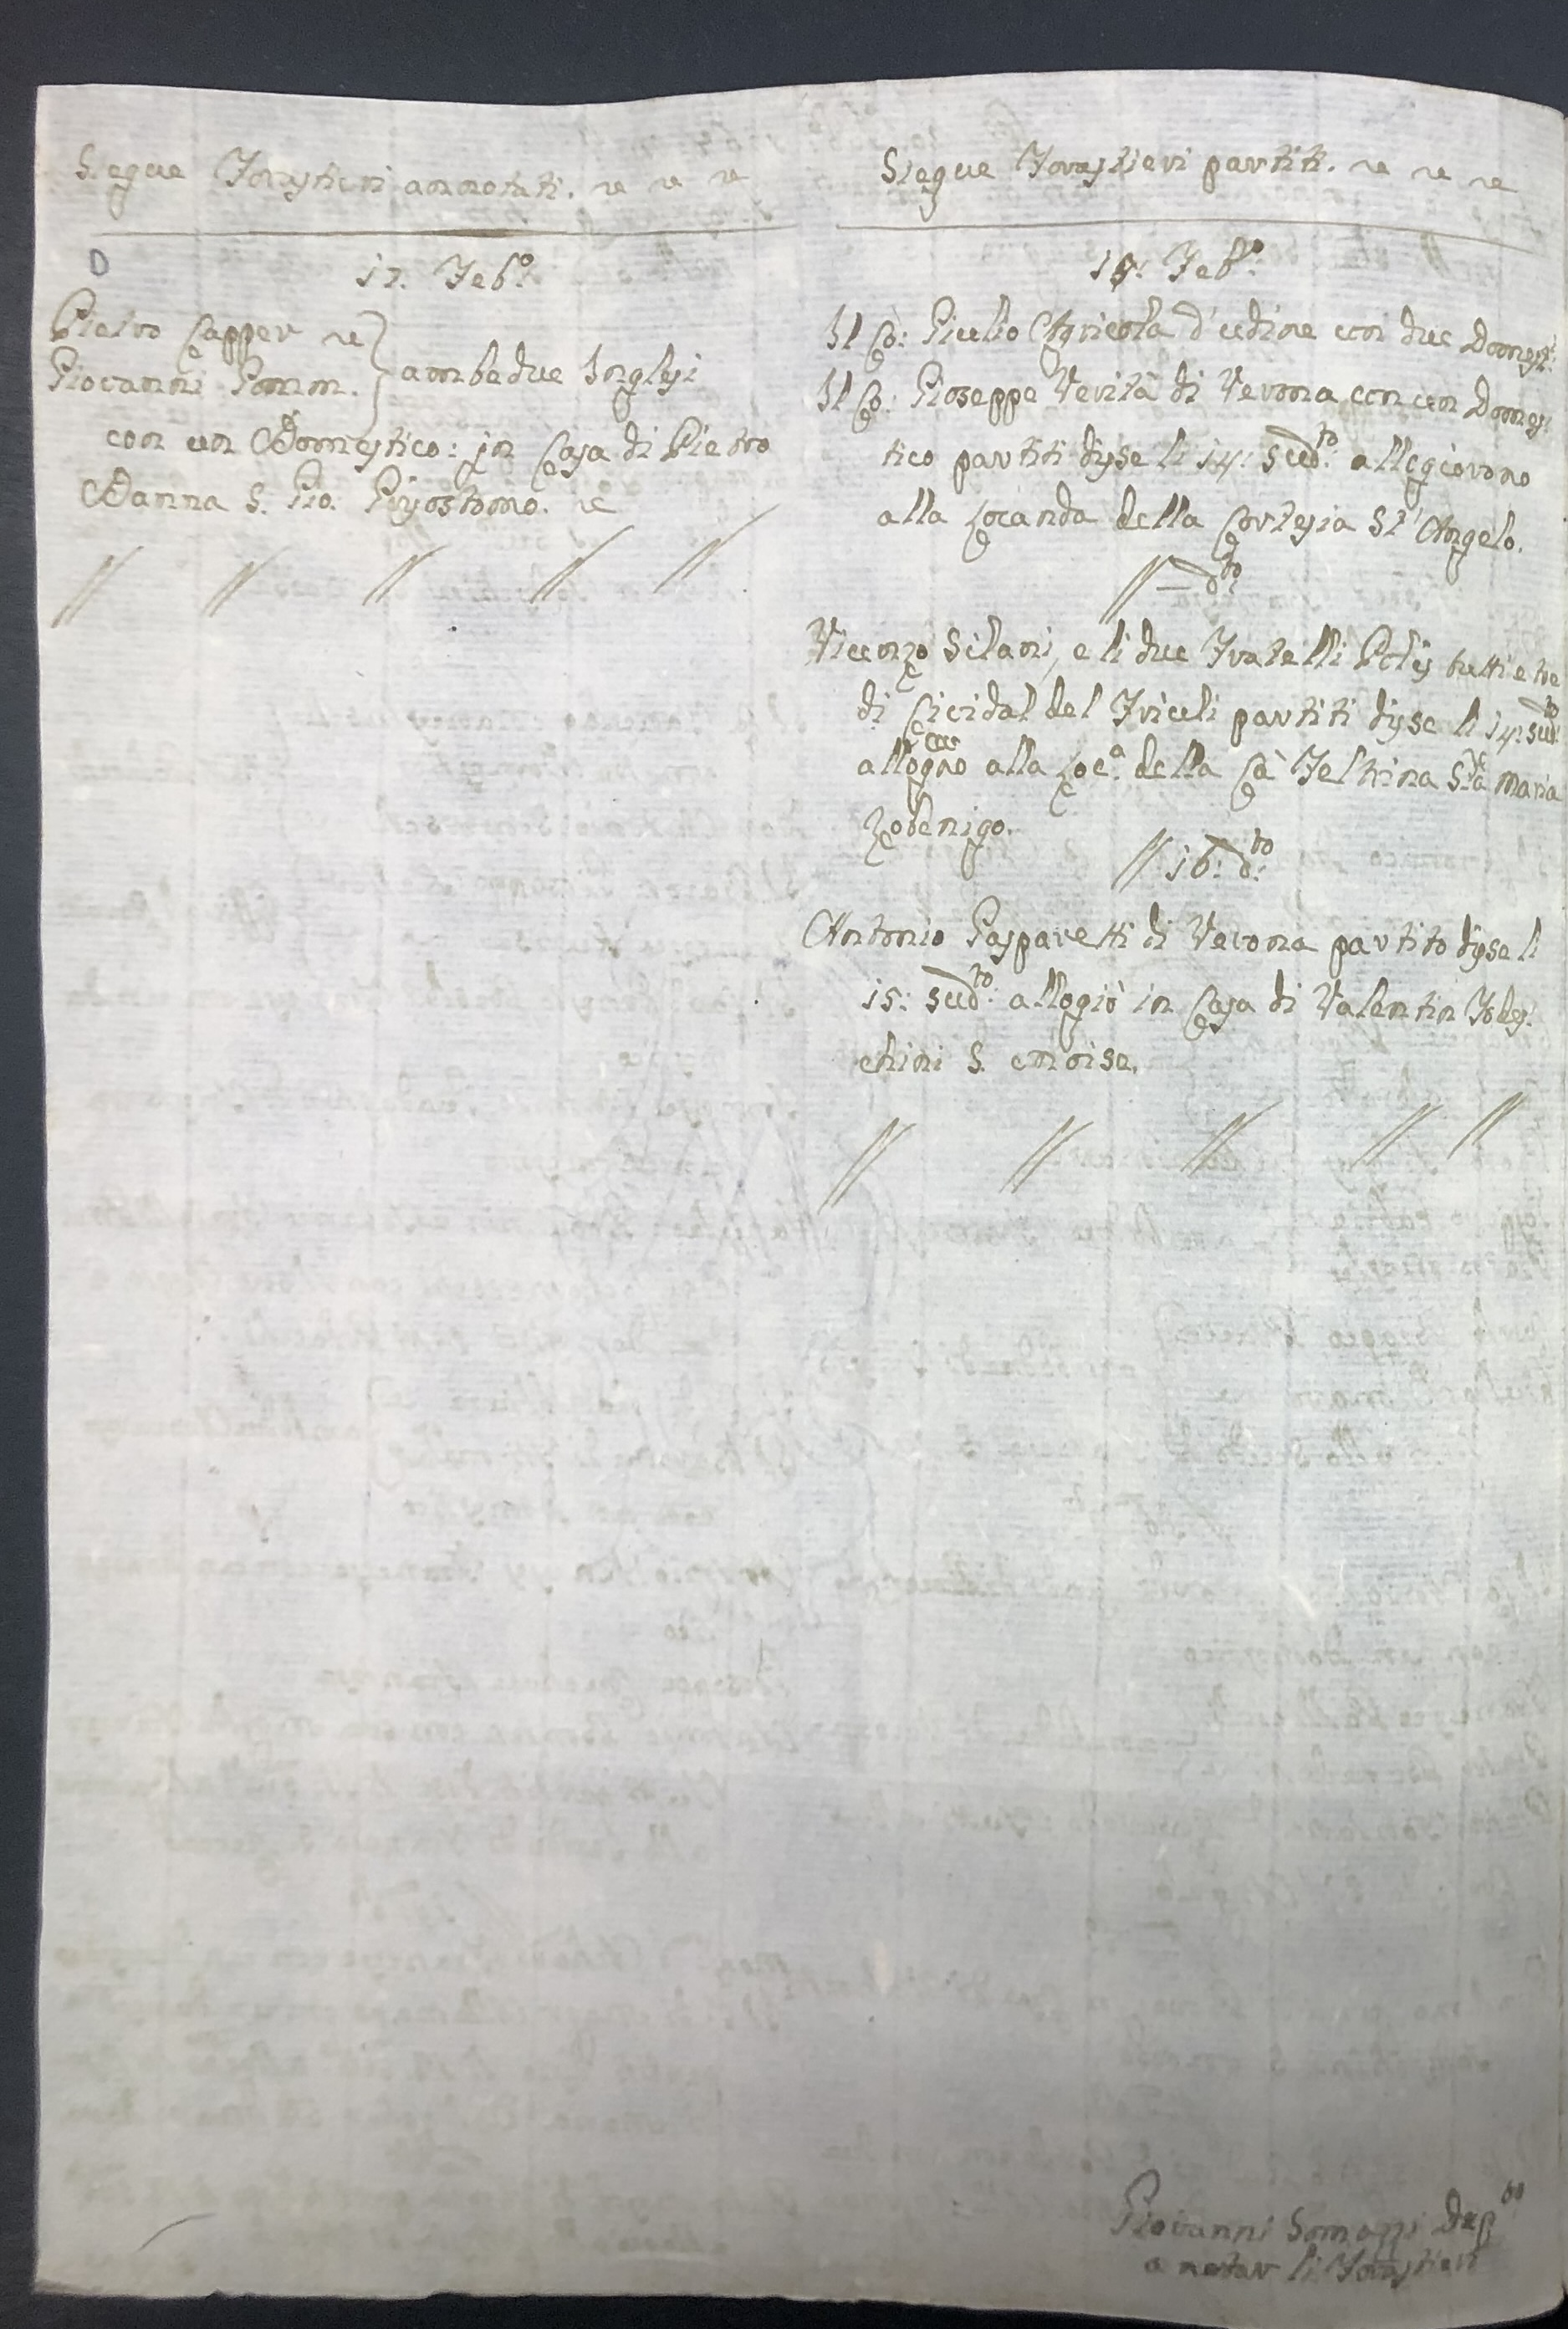 Siegue Forastieri annotati.
17. Feb:o
Pietro Capper
Giovanni Gomm. ambedue Inglesi
con un Domestico: in Casa di Pietro
Danna S. Gio. Grisostomo.
Siegue Forastieri partiti.
15: Feb:o
Il Co: Giulio Agricola d'Udine con due Domest:
Il Co: Gioseppe Verità di Verona con un Domes
tico partiti disse li 14: sud:to allogiorono
alla Locanda della Cortesia St' Angelo.
// d:to
Vicenzo Silani, e li due Fratelli Polis tutti e tre
di Cividal del Friuli partiti disse li 14: sud:to
allogno alla Loc:a della Cà Feltrina S:ta Maria
Zobenigo.
// 16: d:to
Antonio Gasparetti di Verona partito disse li
15: sud:to allogiò in Casa di Valentin
chini S. Moise.
Giovanni Dep:to
a notar li Forastieri